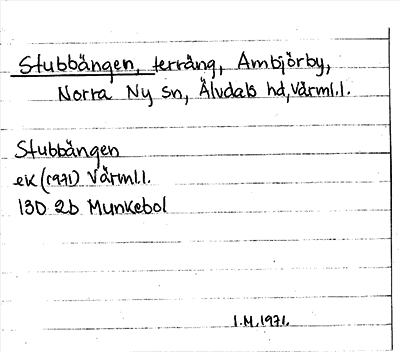 Stubbängen, terräng, Ambjörby,
Norra Ny sn, Älvdals hd, Värml.l.
Stubbängen
ek (1971) Värml.l.
13D 2b Munkebol
I.M.1971.